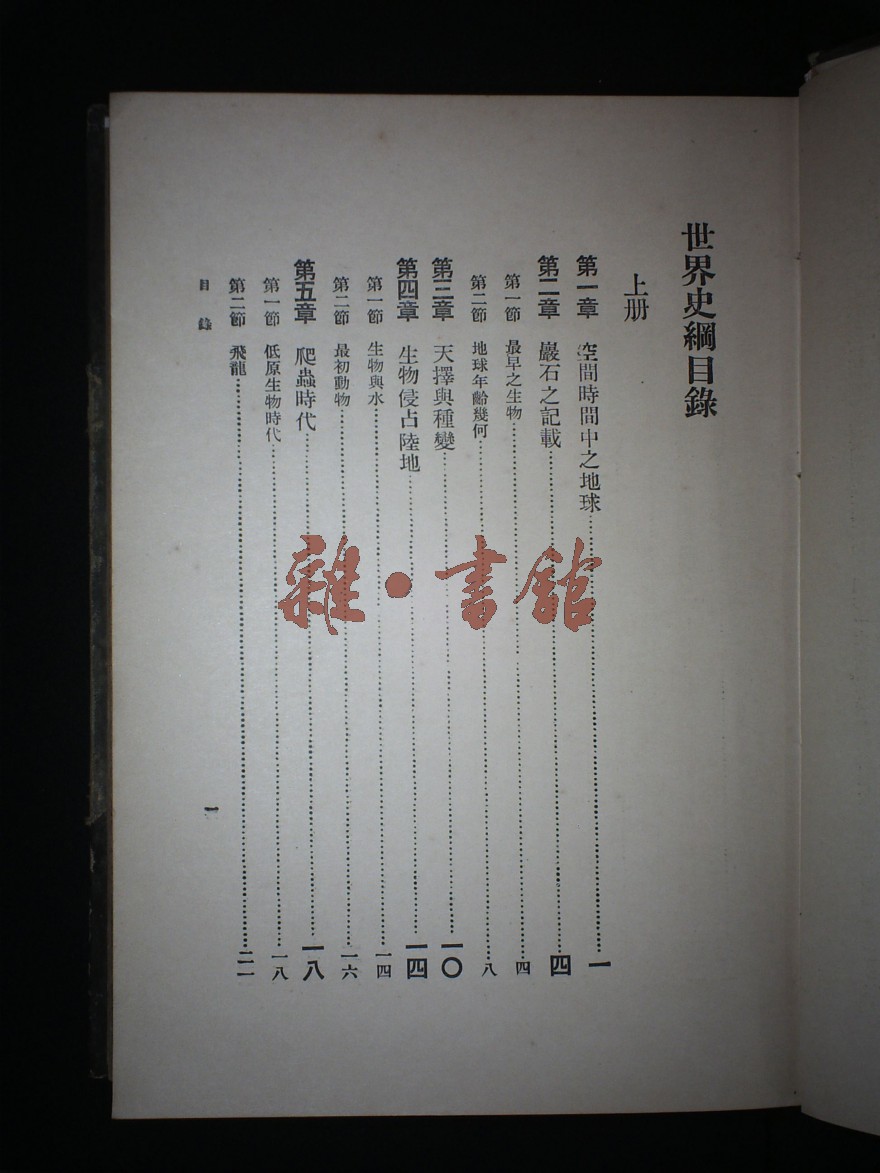 世界史綱目錄
上册
第一章 空間時間中之地球……一
第二章 巖石之記載……四
第一節 最早之生物……四
第二節 地球年齡幾何……八
第三章 天擇與種變……一〇
第四章 生物侵占陸地……一四
第一節 生物與水……一四
第二節 最初動物……一六
第五章 爬蟲時代……一八
第一節 低原生物時代……一八
第二節 飛龍……二一
目錄 一
雜·書館